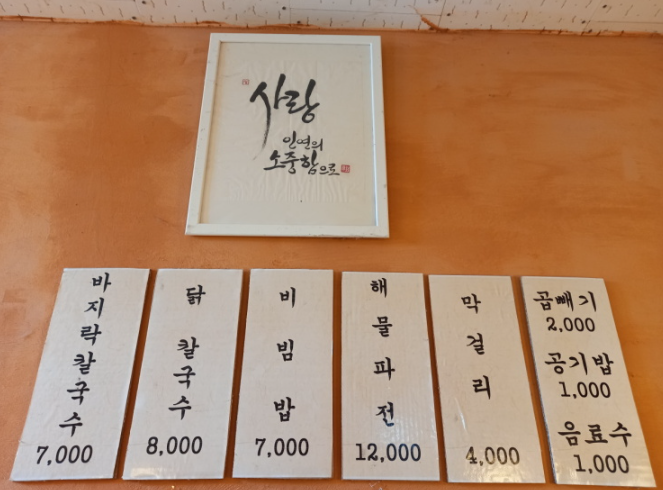 사랑
인연의
소중함으로
바지락칼국수
7,000
닭칼국수
8,000
비빔밥
7,000
해물파전
12,000
막걸리
4,000
곱빼기
2,000
공기밥
1,000
음료수
1,000